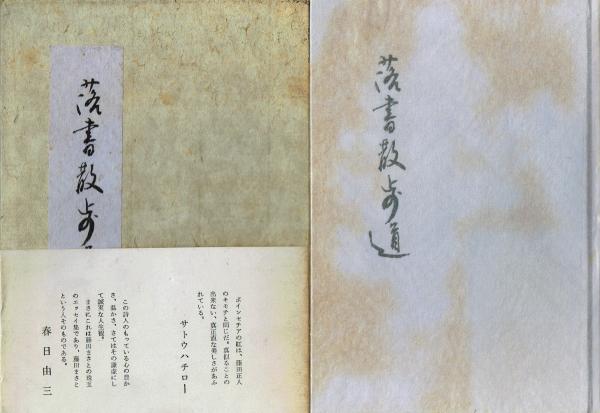 落書散歩
ポインセチアの紅は、藤田正人
のキモチと同じだ。真似ることの
出来ない、真正直な美しさがあふ
れている。
サトウハチロー
この詩人のもっている心の豊か
さ、温かさ、さてはその謙虚にし
て誠実な人生観。
まさにこれは藤田まさとの珠玉
のエッセイ集であり、藤田まさと
という人そのものである。
春日由三
落書散歩道